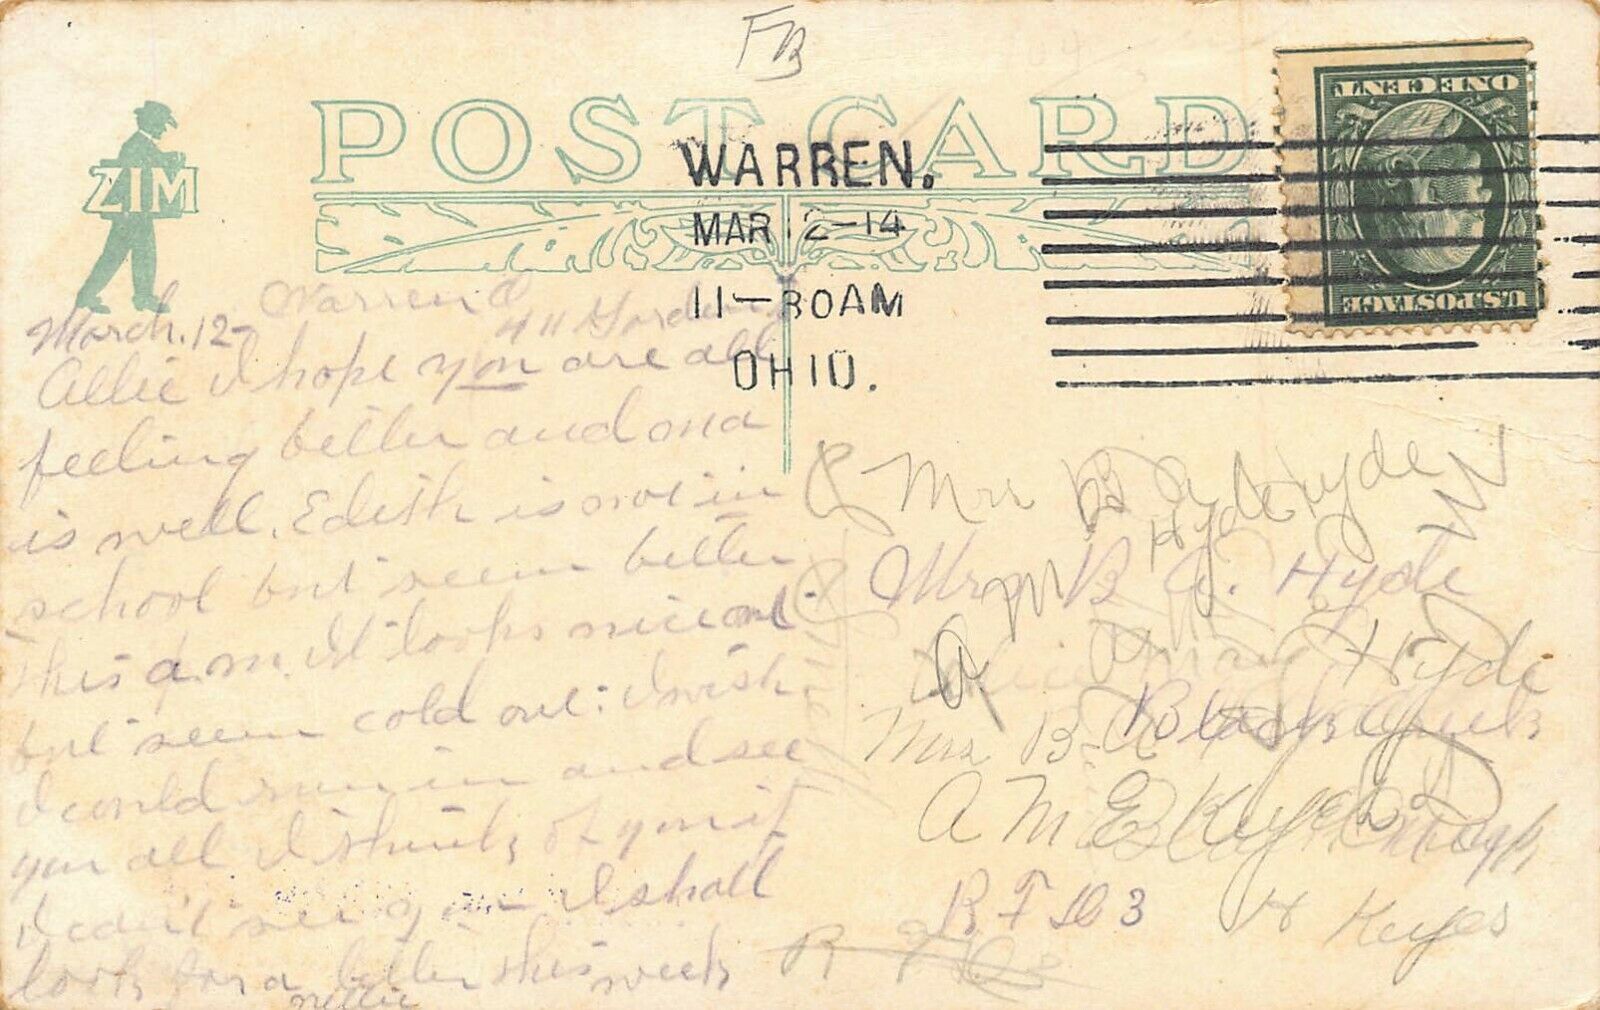 FB
POST CARD
ZIM
WARREN.
MAR 12-14
11-30AM
OHIO.
ONE CENT
U.S. POSTAGE
Warren O
March. 12- 411 Gordon
Allie I hope you are all
feeling better and ona
is well. Edith is not in
school but seem better
this a.m. It looks nice out
but seem cold out: I wish
I could run in and see
you all I think of you if
I can't see you I shall
look for a better this week
Nellie
& Mrs B A Hyde
Hyde
& Mrs B A. Hyde
A M
Hyde
Mrs B. A
Black
A M E Keyes
R F D 3
H Keyes
R F D